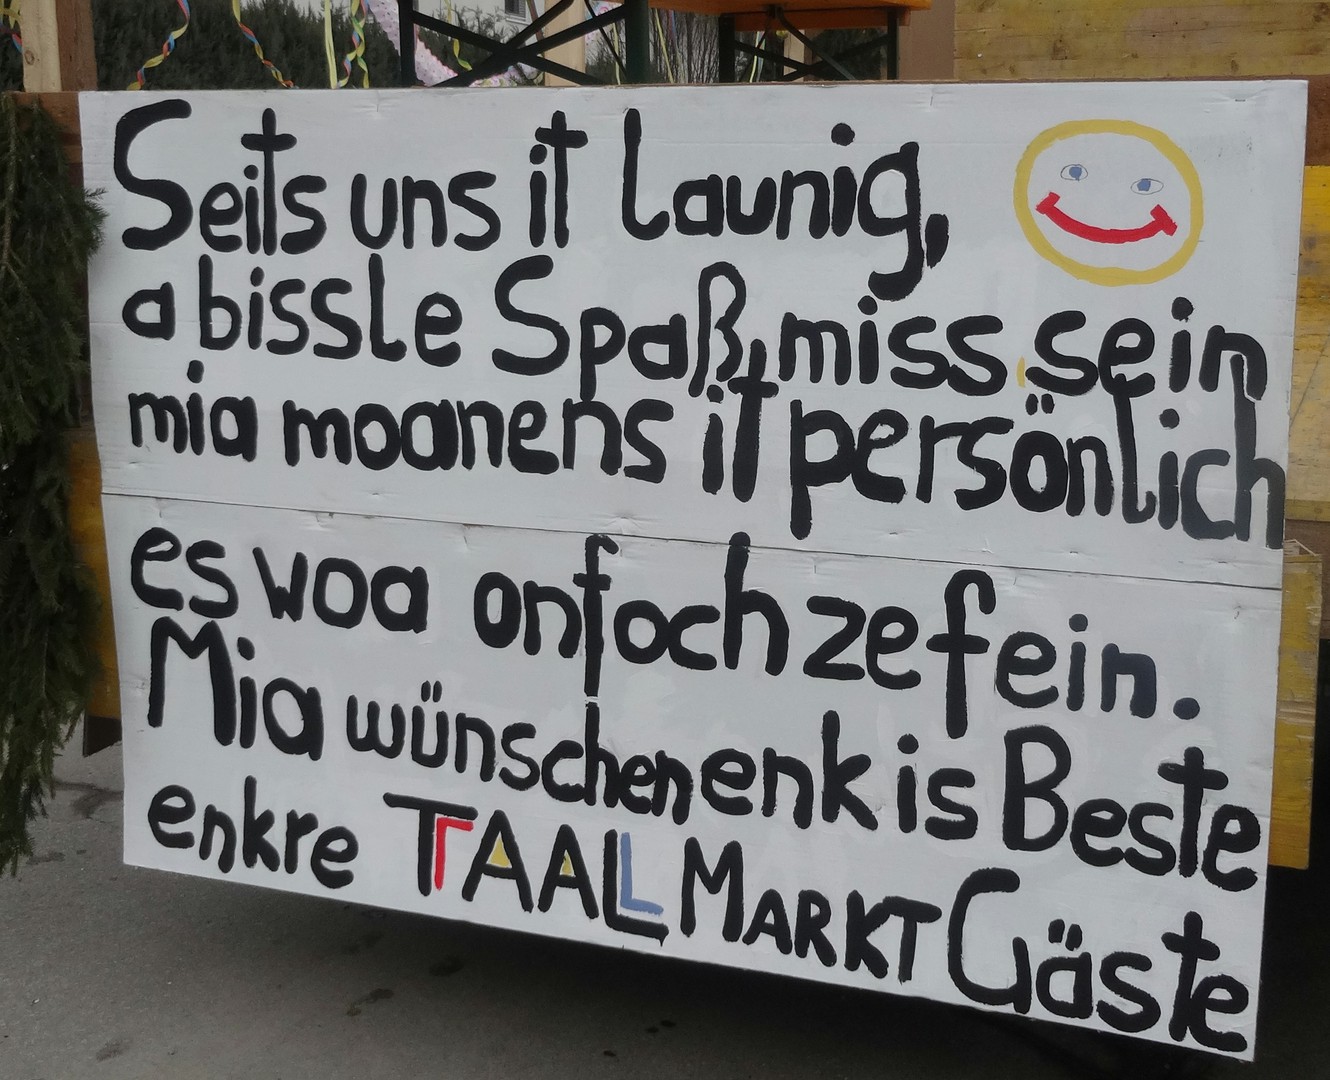 Seits uns it Launig,
a bissle Spaß, miss sein
mia moanens it persönlich
es woa onfoch ze fein.
Mia wünschen enk is Beste
enkre TAALMARKT Gäste